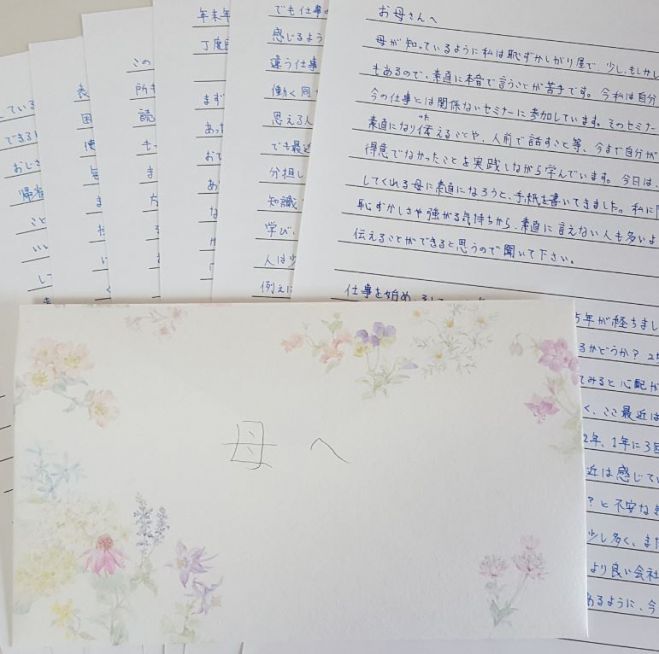 お母さんへ
母が知っているように私は恥ずかしがり屋で、少し、もしかし
もあるので、素直に本音で言うことが苦手です。今私は自分
今の仕事とは関係ないセミナーに参加しています。そのセミナー
素直になり伝えることや、人前で話すこと等、今まで自分が
得意でなかったことを実践しながら学んでいます。今日は、
してくれる母に素直になろうと、手紙を書いてきました。私に
恥ずかしさや強がる気持ちから、素直に言えない人も多いよ
伝えることができると思うので聞いて下さい。
仕事を始め
5年が経ちまし
るかどうか?
てみると心配が
く、ここ最近は
2年、1年に3回
近は感じてい
?と不安な
少し多く、また
より良い会社
あるように、今
でも仕事
感じるよう
違う仕事
働く同
思える人
でも最近
分担し
知識
学び、
人は少
例えに
年末年
丁度
まず
あっ
おて
この
所
読
ている
できる
おじさ
帰省
こと
母へ